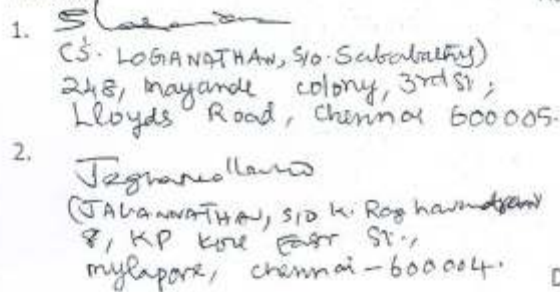 1.
(S. LOGANATHAN, S/o. Sababathy)
248, Mayande colony, 3rd St;
Lloyds Road, Chennai 600005.
2.
(JAGANNATHAN, S/o K. Raghavendran
8, KP Koil East St.,
mylapore, chennai-600004.
D